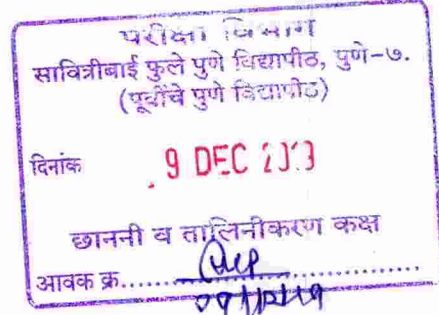 परीक्षा विभाग
सावित्रीबाई फुले पुणे विद्यापीठ, पुणे-७.
(पूर्वीचे पुणे विद्यापीठ)
दिनांक 9 DEC
छाननी व तालिनीकरण कक्ष
आवक क्र.....